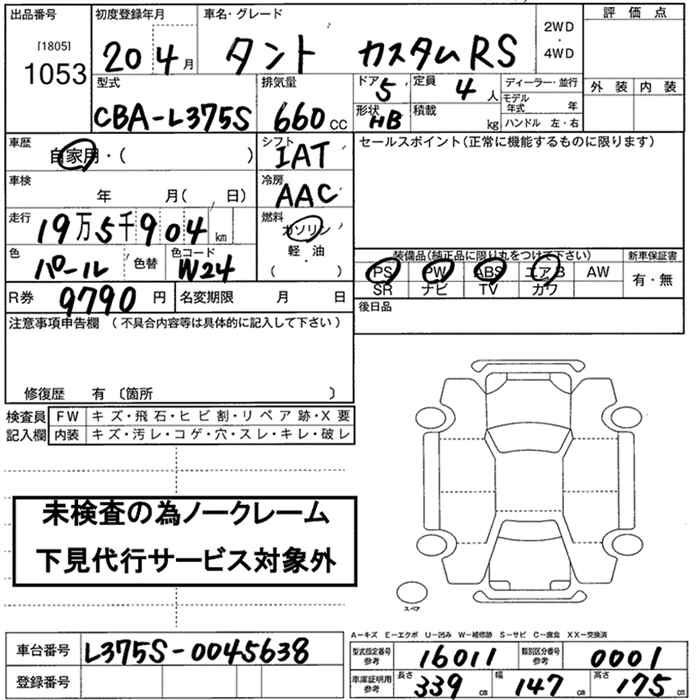 出品番号 初度登録年月 車名・グレード 2WD・4WD 評価点
[1805]
1053 20 4月 タント カスタムRS
外装 内装
型式 排気量 ドア 5 定員 4人 ディーラー・並行
CBA-L375S 660cc 形状 HB 積載 kg モデル年式 年
ハンドル 左・右
車歴 自家用・( ) シフト IAT セールスポイント(正常に機能するものに限ります)
車検 年 月( 日) 冷房 AAC
走行 19万5千904km 燃料 ガソリン
軽・油
( )
色 パール 色替 色コード W24
装備品(純正品に限り丸をつけて下さい) 新車保証書
PS PW ABS エアB AW 有・無
SR ナビ TV カワ
R券 9790円 名変期限 月 日 後日品
注意事項申告欄 (不具合内容等は具体的に記入して下さい)
修復歴 有 〔箇所 〕
検査員 FW キズ・飛石・ヒビ割・リペア跡・X要
記入欄 内装 キズ・汚レ・コゲ・穴・スレ・キレ・破レ
未検査の為ノークレーム
下見代行サービス対象外
スペア
A-キズ E-エクボ U-凹み W-補修跡 S-サビ C-腐食 XX-交換済
車台番号 L375S-0045638
登録番号
型式指定番号 参考 16011 類別区分番号 参考 0001
車庫証明用 参考 長さ 339cm 幅 147cm 高さ 175cm